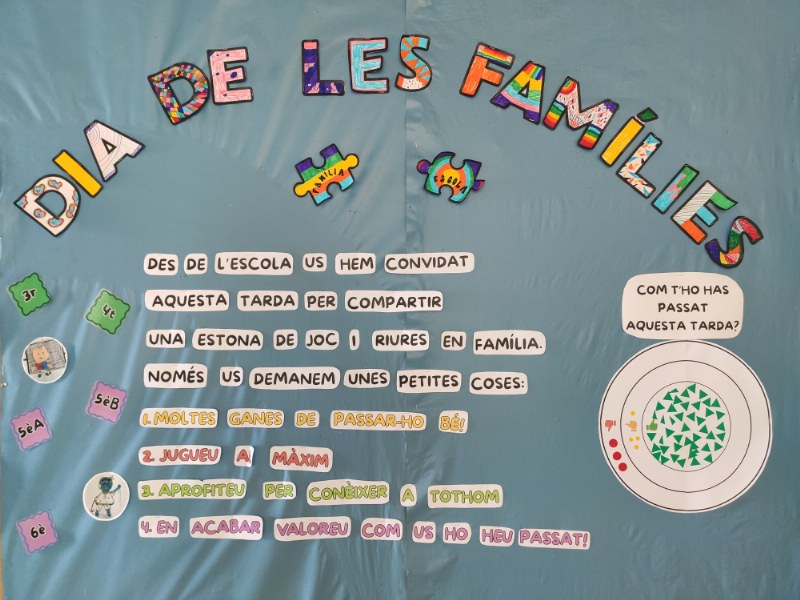 DIA DE LES FAMÍLIES
FAMÍLIA
ESCOLA
DES DE L'ESCOLA US HEM CONVIDAT
AQUESTA TARDA PER COMPARTIR
UNA ESTONA DE JOC I RIURES EN FAMÍLIA.
NOMÉS US DEMANEM UNES PETITES COSES:
1. MOLTES GANES DE PASSAR-HO BÉ!
2. JUGUEU A MÀXIM
3. APROFITEU PER CONÈIXER A TOTHOM
4. EN ACABAR VALOREU COM US HO HEU PASSAT!
3r
4t
5èA
5èB
6è
COM T'HO HAS
PASSAT
AQUESTA TARDA?